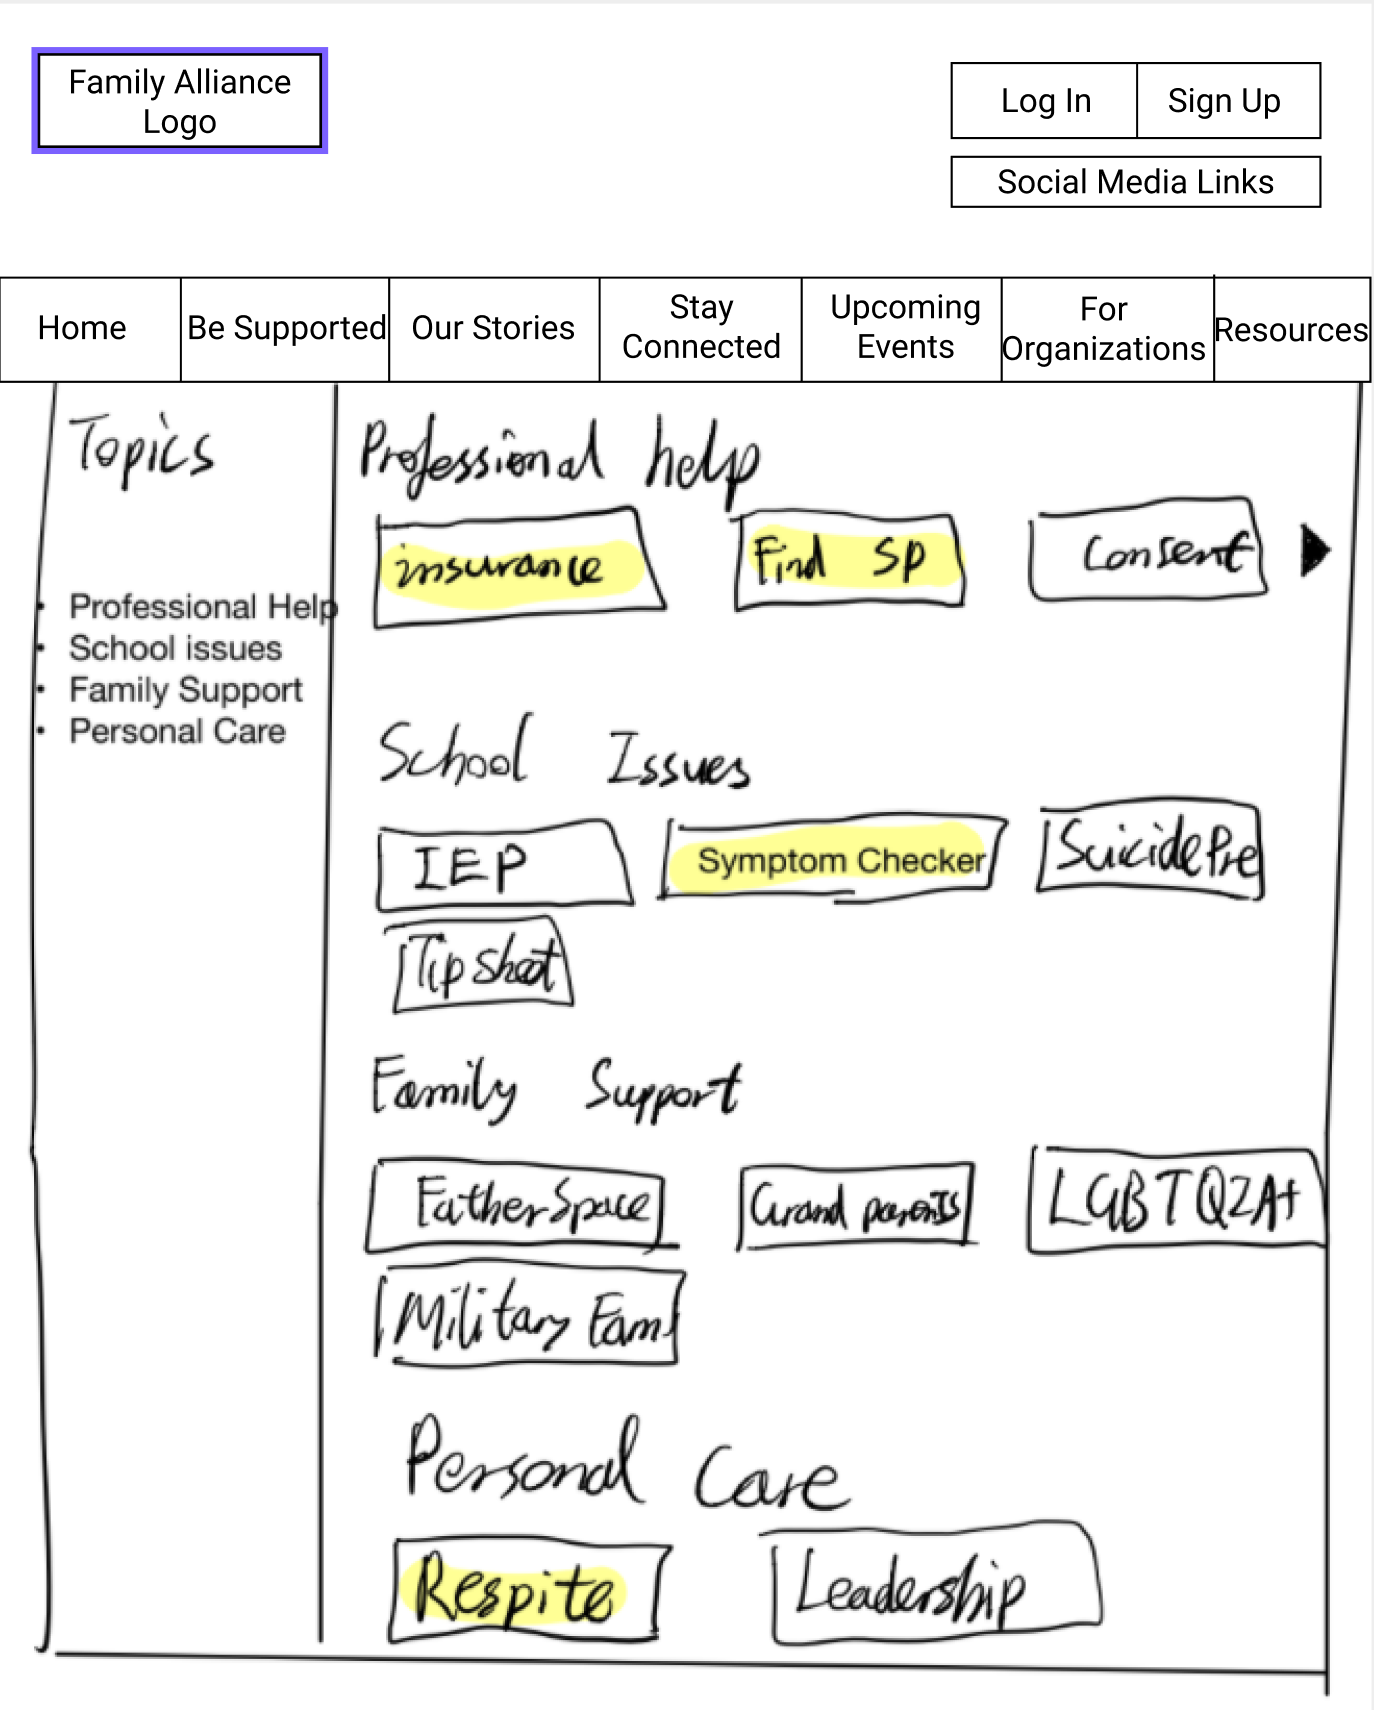 Family Alliance
Logo
Log In
Sign Up
Social Media Links
Home
Be Supported
Our Stories
Stay
Connected
Upcoming
Events
For
Organizations
Resources
Topics
• Professional Help
• School issues
• Family Support
• Personal Care
Professional help
insurance
Find SP
Consent
School Issues
IEP
Symptom Checker
Suicide Pre
Tip sheet
Family Support
Father Space
Grand parents
LGBTQ2A+
Military Fam
Personal Care
Respite
Leadership